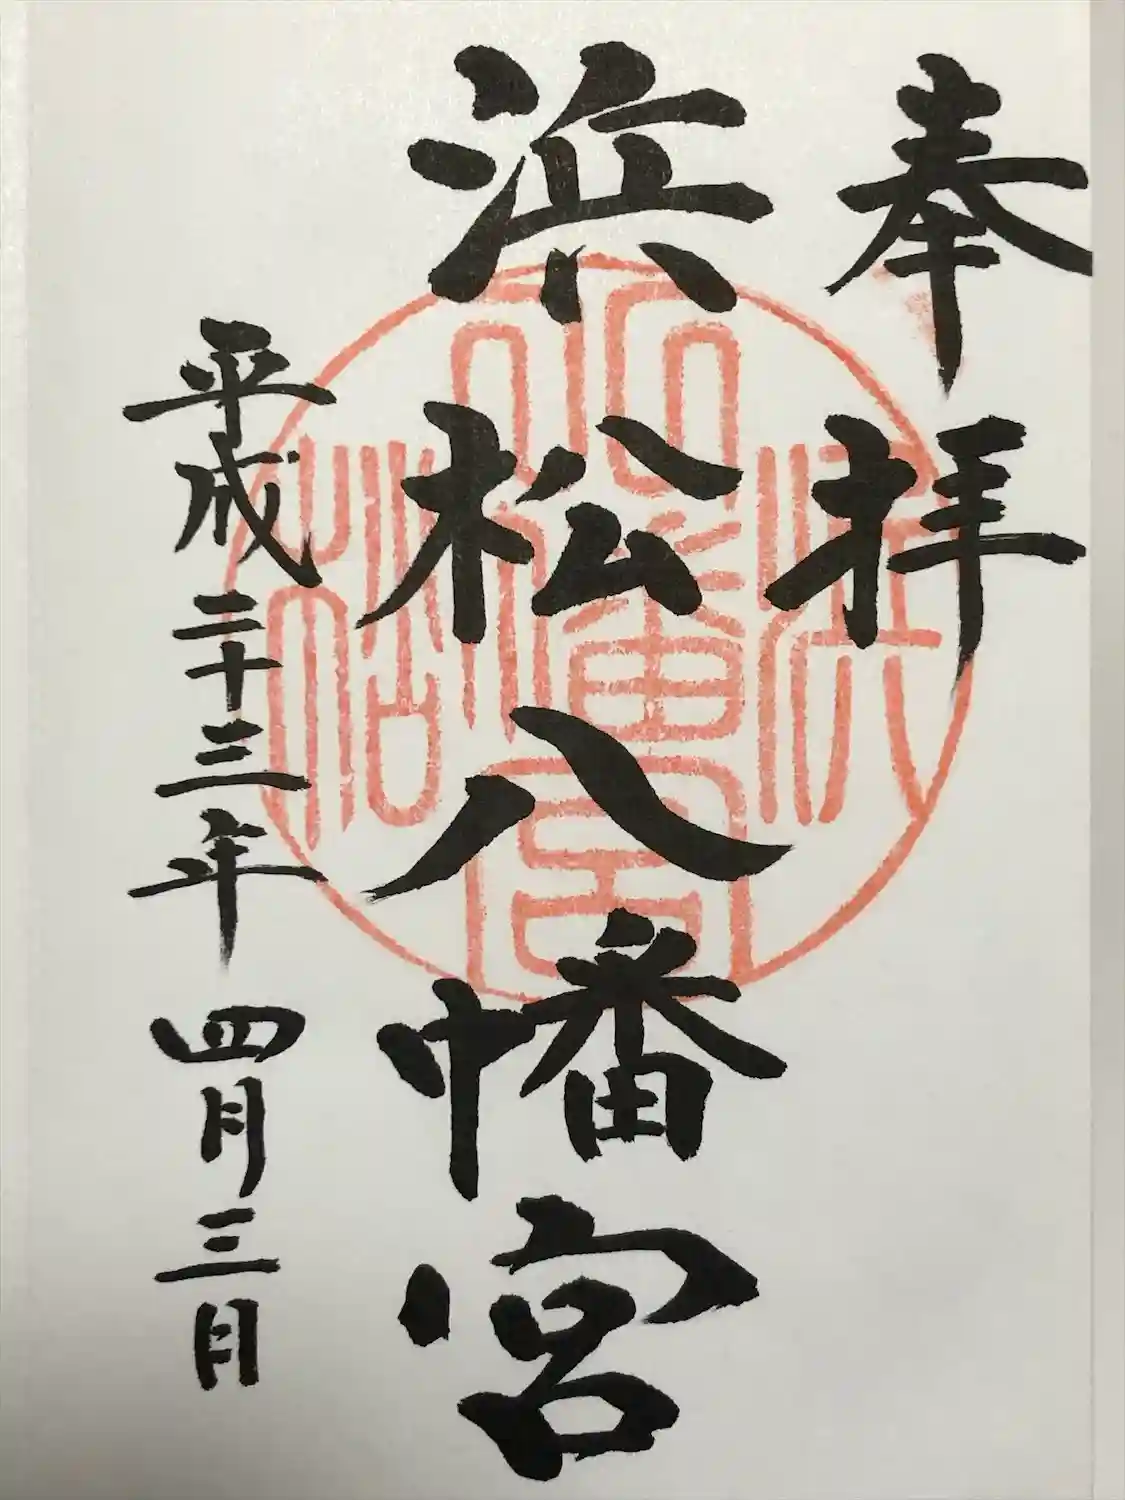 奉拝
浜松八幡宮
平成二十三年四月三日